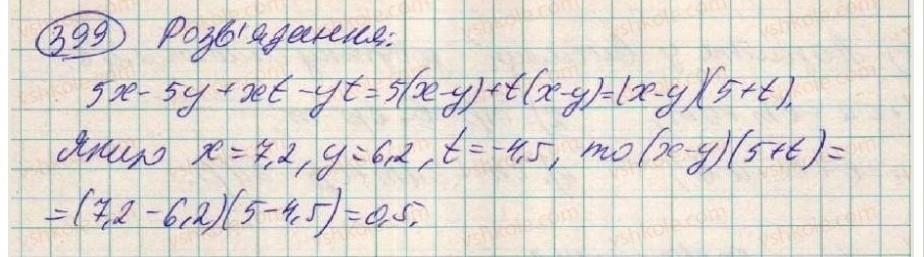 399 Розв'язання:
5x - 5y + xt - yt = 5(x-y) + t(x-y) = (x-y)(5+t).
Якщо x = 7,2, y = 6,2, t = -4,5, то (x-y)(5+t) =
= (7,2 - 6,2)(5 - 4,5) = 0,5.